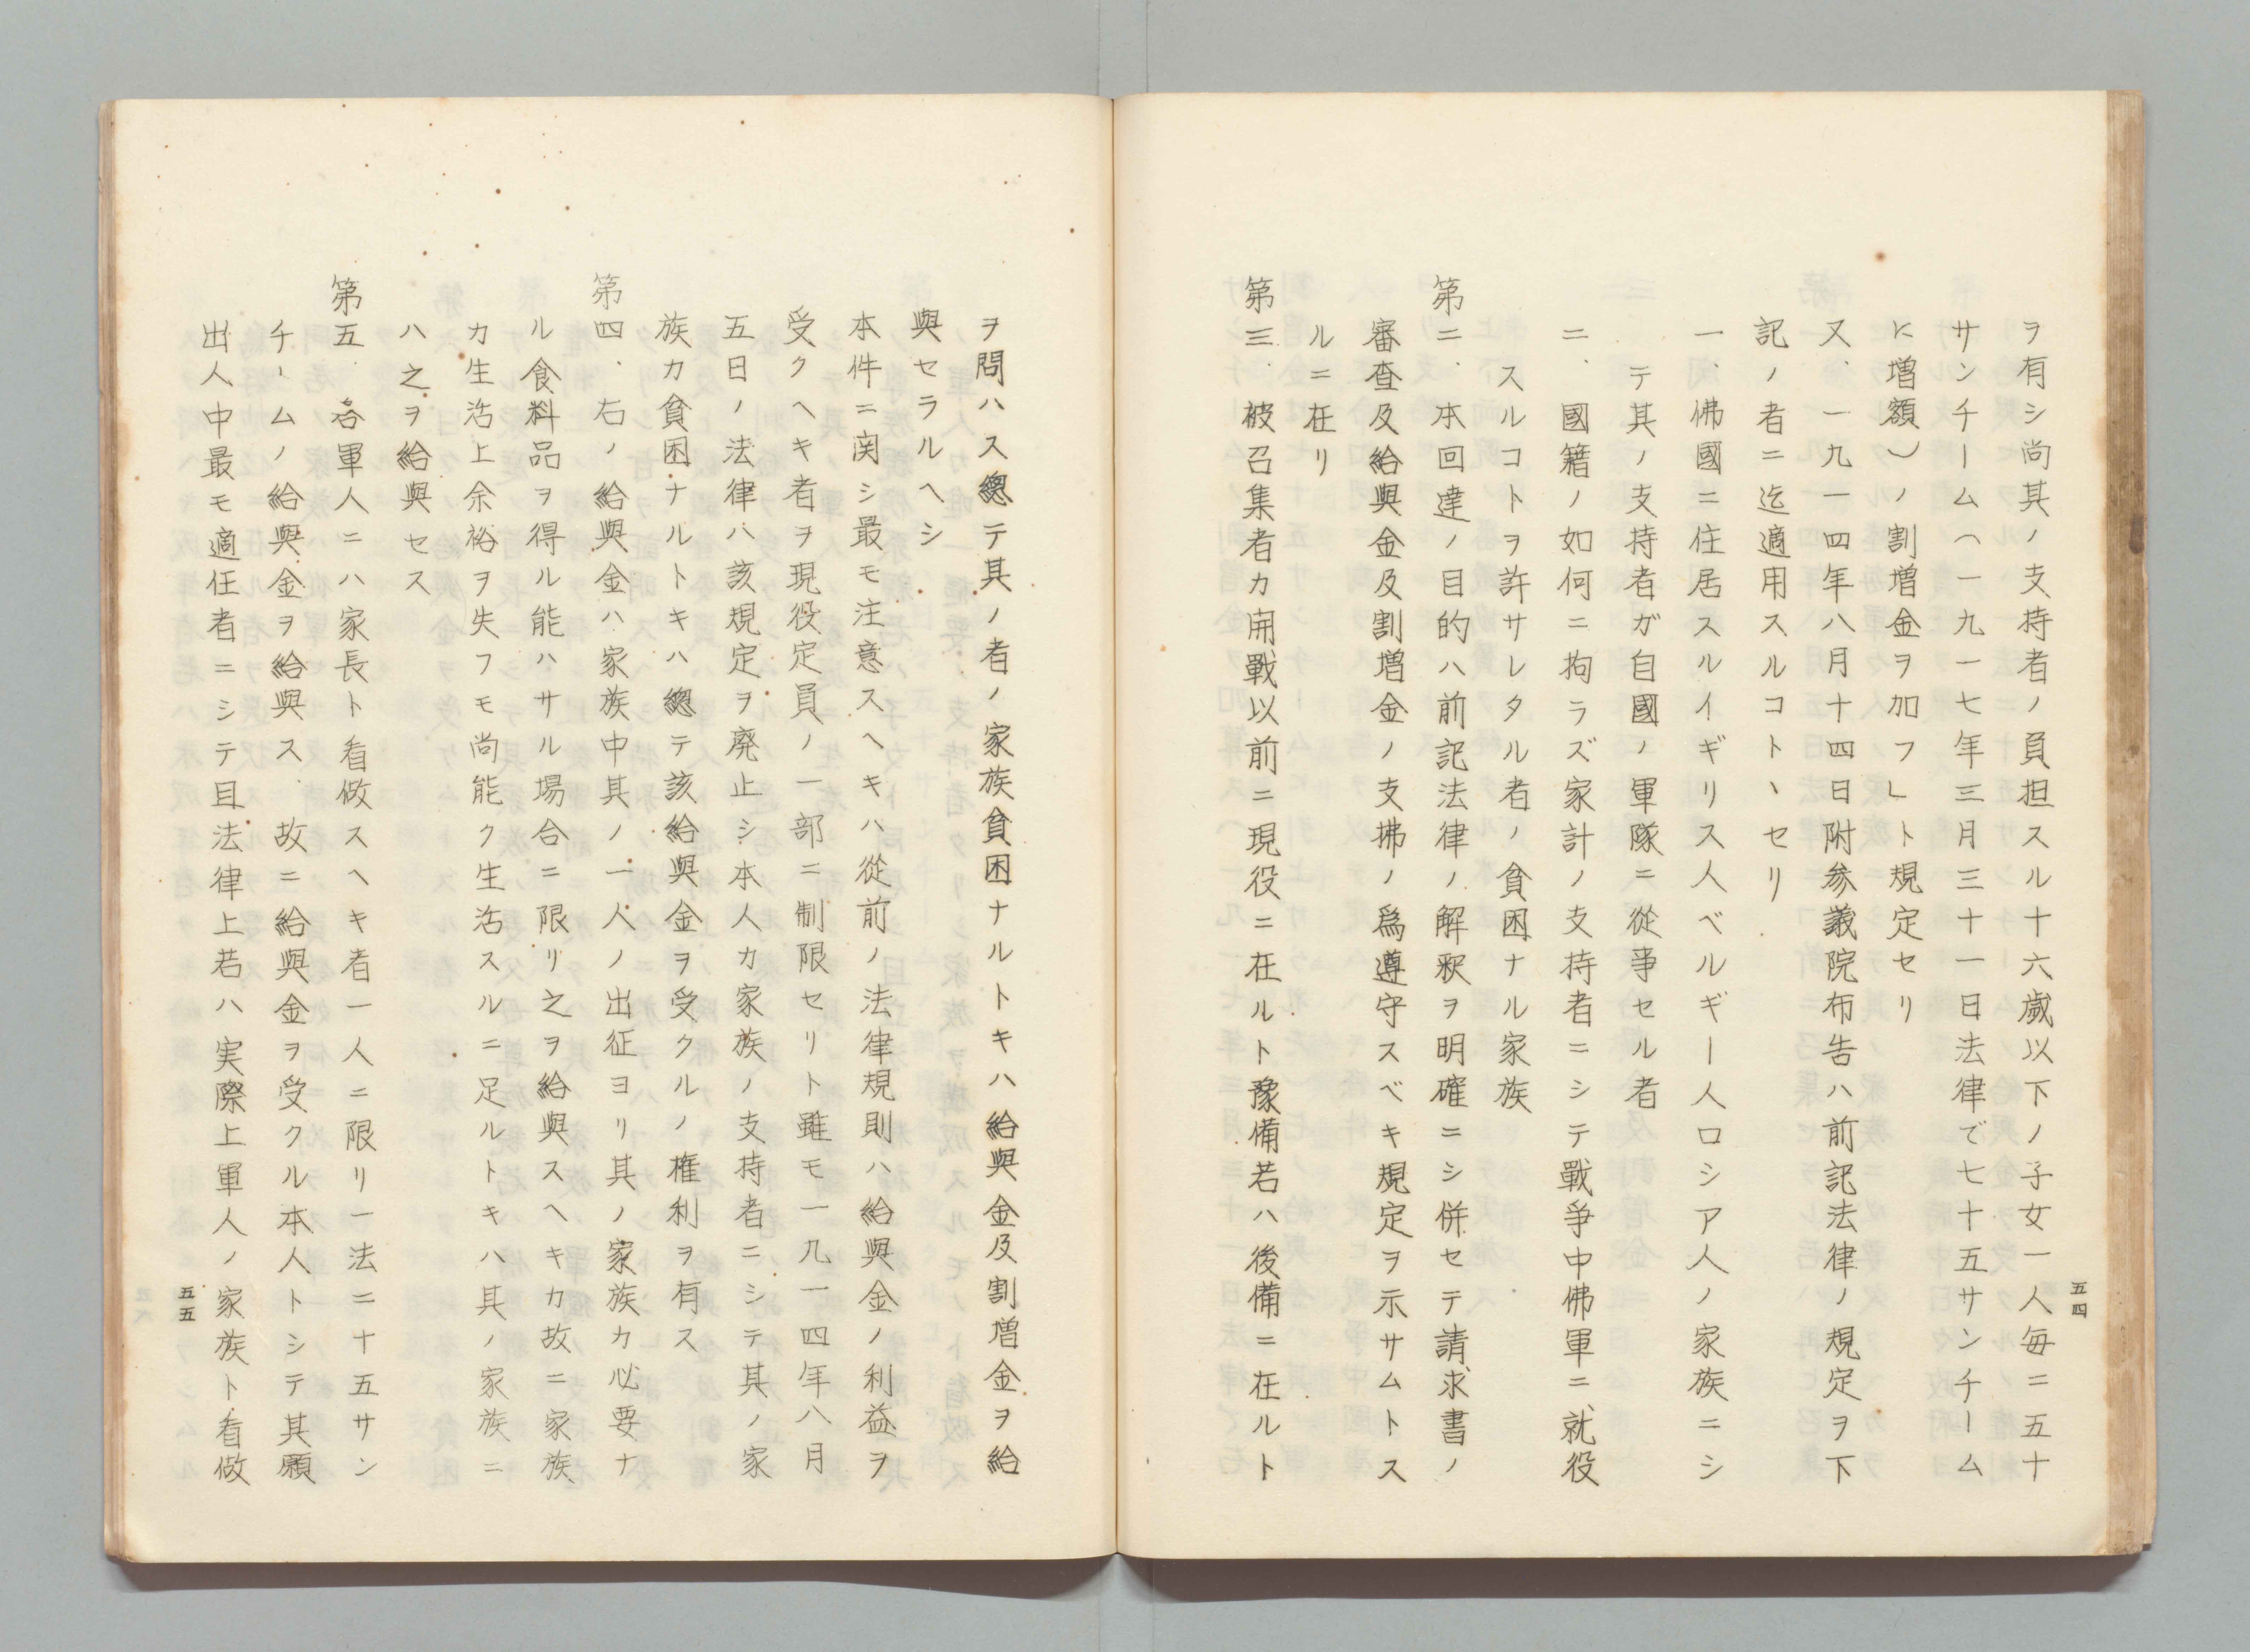 ヲ有シ尚其ノ支持者ノ負担スル十六歳以下ノ子女一人毎ニ五十
サンチーム（一九一七年三月三十一日法律で七十五サンチーム
ニ増額）ノ割増金ヲ加フ」ト規定セリ
又、一九一四年八月十四日附参議院布告ハ前記法律ノ規定ヲ下
記ノ者ニ迄適用スルコトヽセリ
一、佛國ニ住居スルイギリス人ベルギー人ロシア人ノ家族ニシ
テ其ノ支持者ガ自國ノ軍隊ニ從事セル者
二、國籍ノ如何ニ拘ラズ家計ノ支持者ニシテ戰争中佛軍ニ就役
スルコトヲ許サレタル者ノ貧困ナル家族
第二、本回達ノ目的ハ前記法律ノ解釈ヲ明確ニシ併セテ請求書ノ
審査及給與金及割増金ノ支拂ノ爲遵守スベキ規定ヲ示サムトス
ルニ在リ
第三、被召集者カ開戰以前ニ現役ニ在ルト豫備若ハ後備ニ在ルト
五四
ヲ問ハス總テ其ノ者ノ家族貧困ナルトキハ給與金及割増金ヲ給
與セラルヘシ
本件ニ関シ最モ注意スヘキハ從前ノ法律規則ハ給與金ノ利益ヲ
受クヘキ者ヲ現役定員ノ一部ニ制限セリト雖モ一九一四年八月
五日ノ法律ハ該規定ヲ廃止シ本人カ家族ノ支持者ニシテ其ノ家
族カ貧困ナルトキハ總テ該給與金ヲ受クルノ権利ヲ有ス
第四、右ノ給與金ハ家族中其ノ一人ノ出征ヨリ其ノ家族カ必要ナ
ル食料品ヲ得ル能ハサル場合ニ限リ之ヲ給與スヘキカ故ニ家族
カ生活上余裕ヲ失フモ尚能ク生活スルニ足ルトキハ其ノ家族ニ
ハ之ヲ給與セス
第五、各軍人ニハ家長ト看做スヘキ者一人ニ限リ一法二十五サン
チームノ給與金ヲ給與ス、故ニ給與金ヲ受クル本人トシテ其願
出人中最モ適任者ニシテ且法律上若ハ実際上軍人ノ家族ト看做
五五